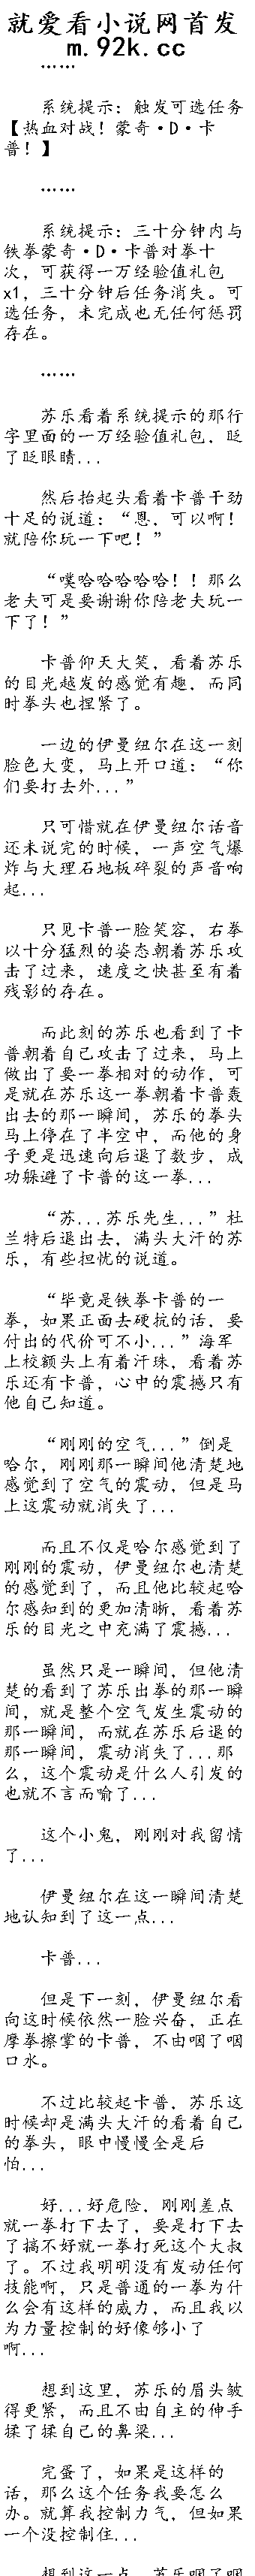 就爱看小说网首发
m.92k.cc
……
系统提示：触发可选任务
【热血对战！蒙奇·D·卡
普！】
……
系统提示：三十分钟内与
铁拳蒙奇·D·卡普对拳十
次，可获得一万经验值礼包
x1，三十分钟后任务消失。可
选任务，未完成也无任何惩罚
存在。
……
苏乐看着系统提示的那行
字里面的一万经验值礼包，眨
了眨眼睛...
然后抬起头看着卡普干劲
十足的说道：“恩，可以啊！
就陪你玩一下吧！”
“噗哈哈哈哈哈！！那么
老夫可是要谢谢你陪老夫玩一
下了！”
卡普仰天大笑，看着苏乐
的目光越发的感觉有趣，而同
时拳头也捏紧了。
一边的伊曼纽尔在这一刻
脸色大变，马上开口道：“你
们要打去外...”
只可惜就在伊曼纽尔话音
还未说完的时候，一声空气爆
炸与大理石地板碎裂的声音响
起...
只见卡普一脸笑容，右拳
以十分猛烈的姿态朝着苏乐攻
击了过来，速度之快甚至有着
残影的存在。
而此刻的苏乐也看到了卡
普朝着自己攻击了过来，马上
做出了要一拳相对的动作，可
是就在苏乐这一拳朝着卡普轰
出去的那一瞬间，苏乐的拳头
马上停在了半空中，而他的身
子更是迅速向后退了数步，成
功躲避了卡普的这一拳...
“苏...苏乐先生...”杜
兰特后退出去，满头大汗的苏
乐，有些担忧的说道。
“毕竟是铁拳卡普的一
拳，如果正面去硬抗的话，要
付出的代价可不小...”海军
上校额头上有着汗珠，看着苏
乐还有卡普，心中的震撼只有
他自己知道。
“刚刚的空气...”倒是
哈尔，刚刚那一瞬间他清楚地
感觉到了空气的震动，但是马
上这震动就消失了...
而且不仅是哈尔感觉到了
刚刚的震动，伊曼纽尔也清楚
的感觉到了，而且他比较起哈
尔感知到的更加清晰，看着苏
乐的目光之中充满了震撼...
虽然只是一瞬间，但他清
楚的看到了苏乐出拳的那一瞬
间，就是整个空气发生震动的
那一瞬间，而就在苏乐后退的
那一瞬间，震动消失了...那
么，这个震动是什么人引发的
也就不言而喻了...
这个小鬼，刚刚对我留情
了...
伊曼纽尔在这一瞬间清楚
地认知到了这一点...
卡普...
但是下一刻，伊曼纽尔看
向这时候依然一脸兴奋，正在
摩拳擦掌的卡普，不由咽了咽
口水。
不过比较起卡普，苏乐这
时候却是满头大汗的看着自己
的拳头，眼中慢慢全是后
怕...
好...好危险，刚刚差点
就一拳打下去了，要是打下去
了搞不好就一拳打死这个大叔
了。不过我明明没有发动任何
技能啊，只是普通的一拳为什
么会有这样的威力，而且我以
为力量控制的好像够小了
啊...
想到这里，苏乐的眉头皱
得更紧，而且不由自主的伸手
揉了揉自己的鼻梁...
完蛋了，如果是这样的
话，那么这个任务我要怎么
办。就算我控制力气，但如果
一个没控制住...
想到这一点，苏乐咽了咽